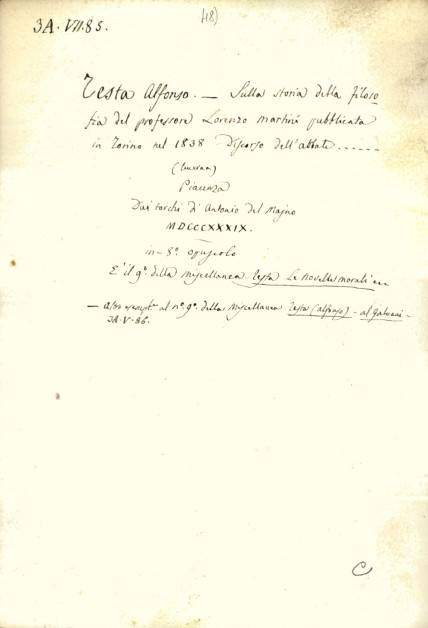 48)
3A. VII. 85.
Testa Alfonso. — Sulla storia della filoso
fia del professore Lorenzo Martini pubblicata
in Torino nel 1838 Discorso dell'abbate ......
Piacenza
Dai torchi di Antonio del Majno
MDCCCXXXIX.
in-8.° opuscolo
E' il 9.° della miscellanea Testa Le Novelle morali
— altro esempl.e al n.° 9.° della Miscellanea Testa (alfonso) - al Galvani -
3A. V. 86.
C